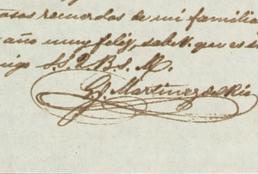 recuerdos de mi familia
año muy feliz, sabe V. que es su
S. S. Q. B. S. M.
G. Martinez del Rio